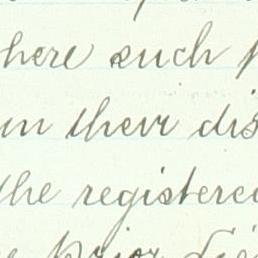 here such
in their dis
the registered
prior